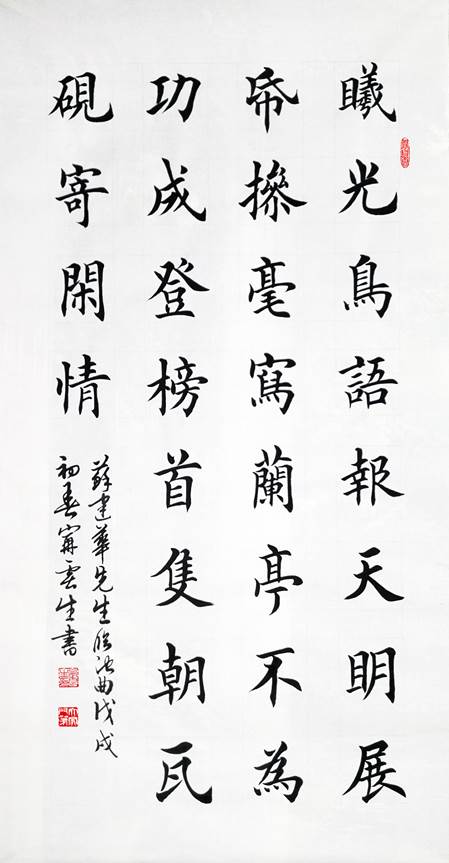 曦光鳥語報天明展
帋操毫寫蘭亭不為
功成登榜首隻朝瓦
硯寄閑情
薛建華先生臨池曲戊戌
初春甯雲生書